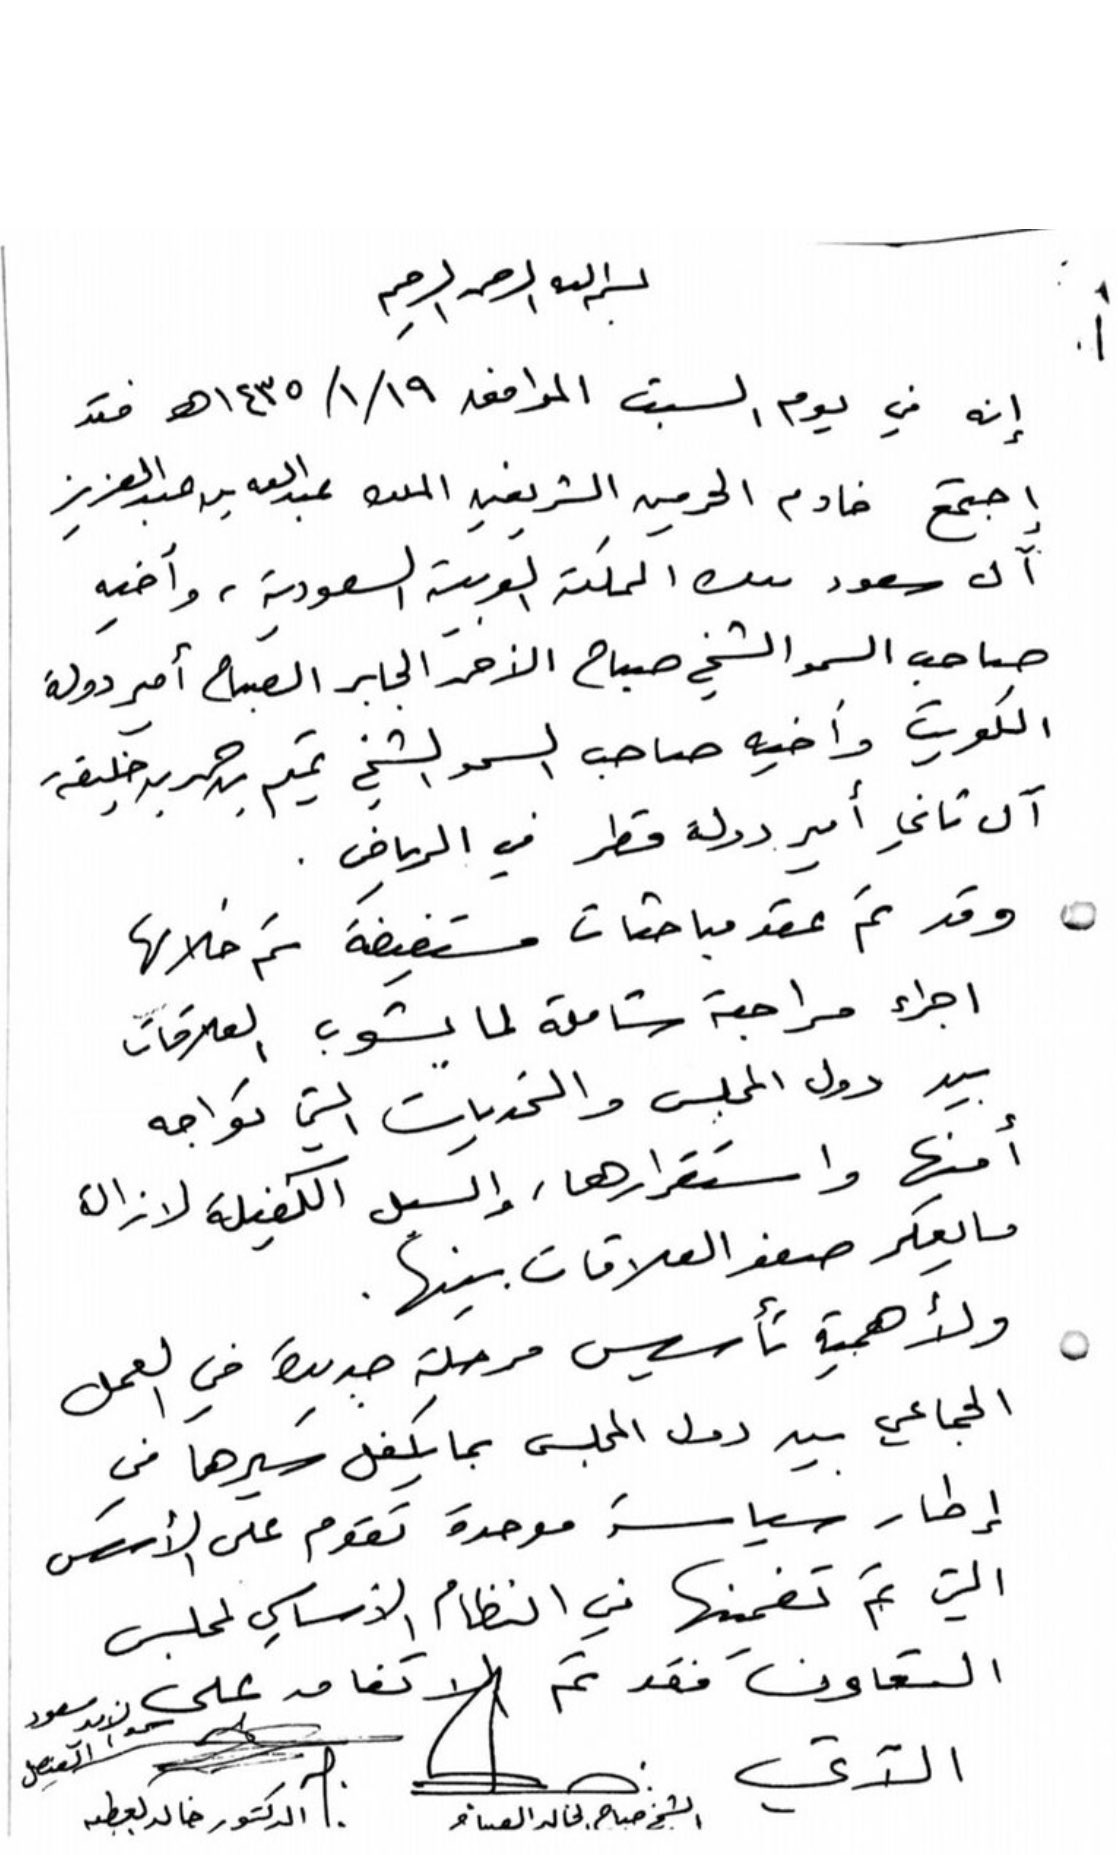 بسم الله الرحمن الرحيم
إنه في يوم السبت الموافق ١٤٣٥/١/١٩هـ فقد
إجتمع خادم الحرمين الشريفين الملك عبدالله بن عبدالعزيز
آل سعود ملك المملكة العربية السعودية، وأخيه
صاحب السمو الشيخ صباح الأحمد الجابر الصباح أمير دولة
الكويت وأخيه صاحب السمو الشيخ تميم بن حمد بن خليفة
آل ثاني أمير دولة قطر في الرياض.
وقد تم عقد مباحثات مستفيضة تم خلالها
اجراء مراجعة شاملة لما يشوب العلاقات
بين دول المجلس والتحديات التي تواجه
أمنها واستقرارها، والسبل الكفيلة لازالة
مايعكر صفو العلاقات بينها.
ولأهمية تأسيس مرحلة جديدة في العمل
الجماعي بين دول المجلس بما يكفل سيرها في
إطار سياسة موحدة تقوم على الأسس
التي تم تضمينها في النظام الأساسي لمجلس
التعاون فقد تم الاتفاق على
الآتي
سمو الأمير سعود
الفيصل
الشيخ صباح الخالد الصباح
الدكتور خالد العطيه